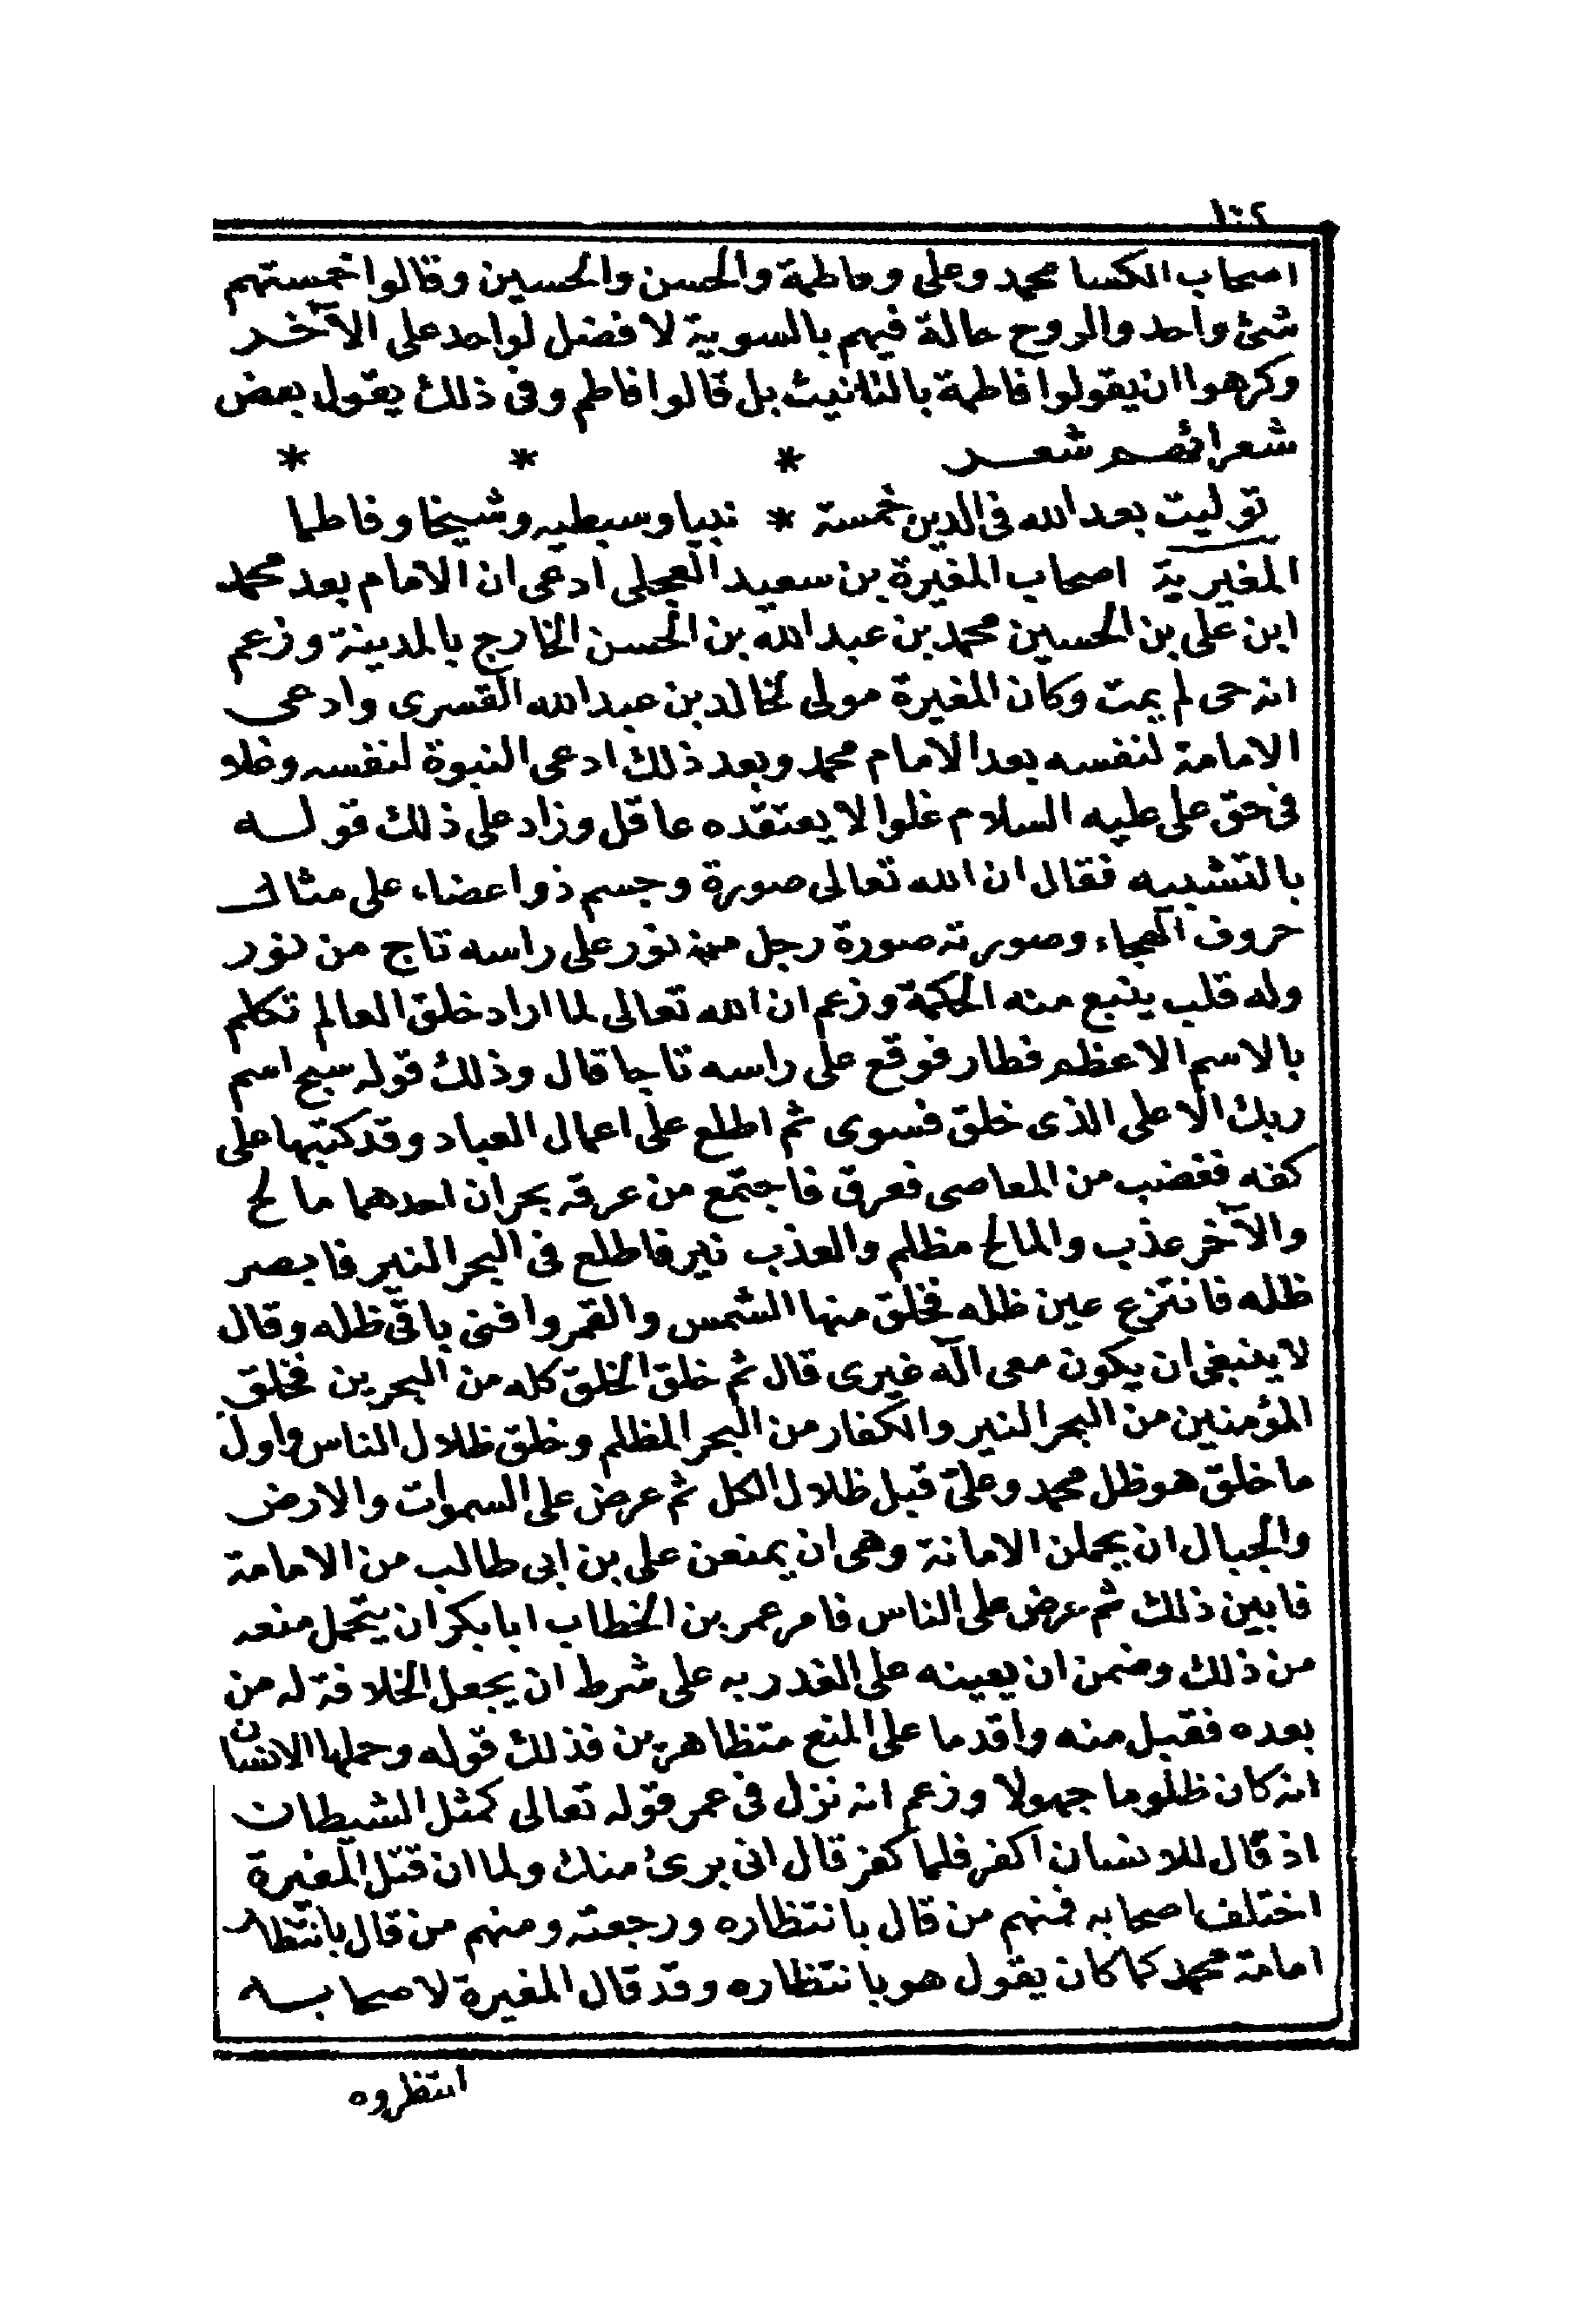 ١٠٢
اصحاب الكسا محمد وعلى وفاطمة والحسن والحسين وقالوا خمستهم
شئ واحد والروح حالة فيهم بالسوية لا فضل لواحد على الآخر
وكرهوا ان يقولوا فاطمة بالتانيث بل قالوا فاطم وفى ذلك يقول بعض
شعرائهم شعر * * *
توليت بعد الله فى الدين خمسة * نبيا وسبطيه وشيخا وفاطما
المغيرية اصحاب المغيرة بن سعيد العجلى ادعى ان الامام بعد محمد
ابن على بن الحسين محمد بن عبد الله بن الحسن الخارج بالمدينة وزعم
انه حى لم يمت وكان المغيرة مولى لخالد بن عبد الله القسرى وادعى
الامامة لنفسه بعد الامام محمد وبعد ذلك ادعى النبوة لنفسه وغلا
فى حق على عليه السلام غلوا لا يعتقده عاقل وزاد على ذلك قوله
بالتشبيه فقال ان الله تعالى صورة وجسم ذو اعضاء على مثال
حروف الهجاء وصورته صورة رجل من نور على راسه تاج من نور
وله قلب ينبع منه الحكمة وزعم ان الله تعالى لما اراد خلق العالم تكلم
بالاسم الاعظم فطار فوقع على راسه تاجا قال وذلك قوله سبح اسم
ربك الاعلى الذى خلق فسوى ثم اطلع على اعمال العباد وقد كتبها على
كفه فغضب من المعاصى فعرق فاجتمع من عرقه بحران احدهما مالح
والآخر عذب والمالح مظلم والعذب نير فاطلع فى البحر النير فابصر
ظله فانتزع عين ظله فخلق منها الشمس والقمر وافنى باقى ظله وقال
لا ينبغى ان يكون معى اله غيرى قال ثم خلق الخلق كله من البحرين فخلق
المؤمنين من البحر النير والكفار من البحر المظلم وخلق ظلال الناس واول
ما خلق هو ظل محمد وعلى قبل ظلال الكل ثم عرض على السموات والارض
والجبال ان يحملن الامانة وهى ان يمنعن على بن ابى طالب من الامامة
فابين ذلك ثم عرض على الناس فامر عمر بن الخطاب ابا بكر ان يتحمل منعه
من ذلك وضمن ان يعينه على الغدر به على شرط ان يجعل الخلافة له من
بعده فقبل منه واقدما على المنع متظاهرين فذلك قوله وحملها الانسان
انه كان ظلوما جهولا وزعم انه نزل فى عمر قوله تعالى كمثل الشيطان
اذ قال للانسان اكفر فلما كفر قال انى برئ منك ولما ان قتل المغيرة
اختلف اصحابه فمنهم من قال بانتظاره ورجعته ومنهم من قال بانتظار
امامة محمد كما كان يقول هو بانتظاره وقد قال المغيرة لاصحابه
انتظروه